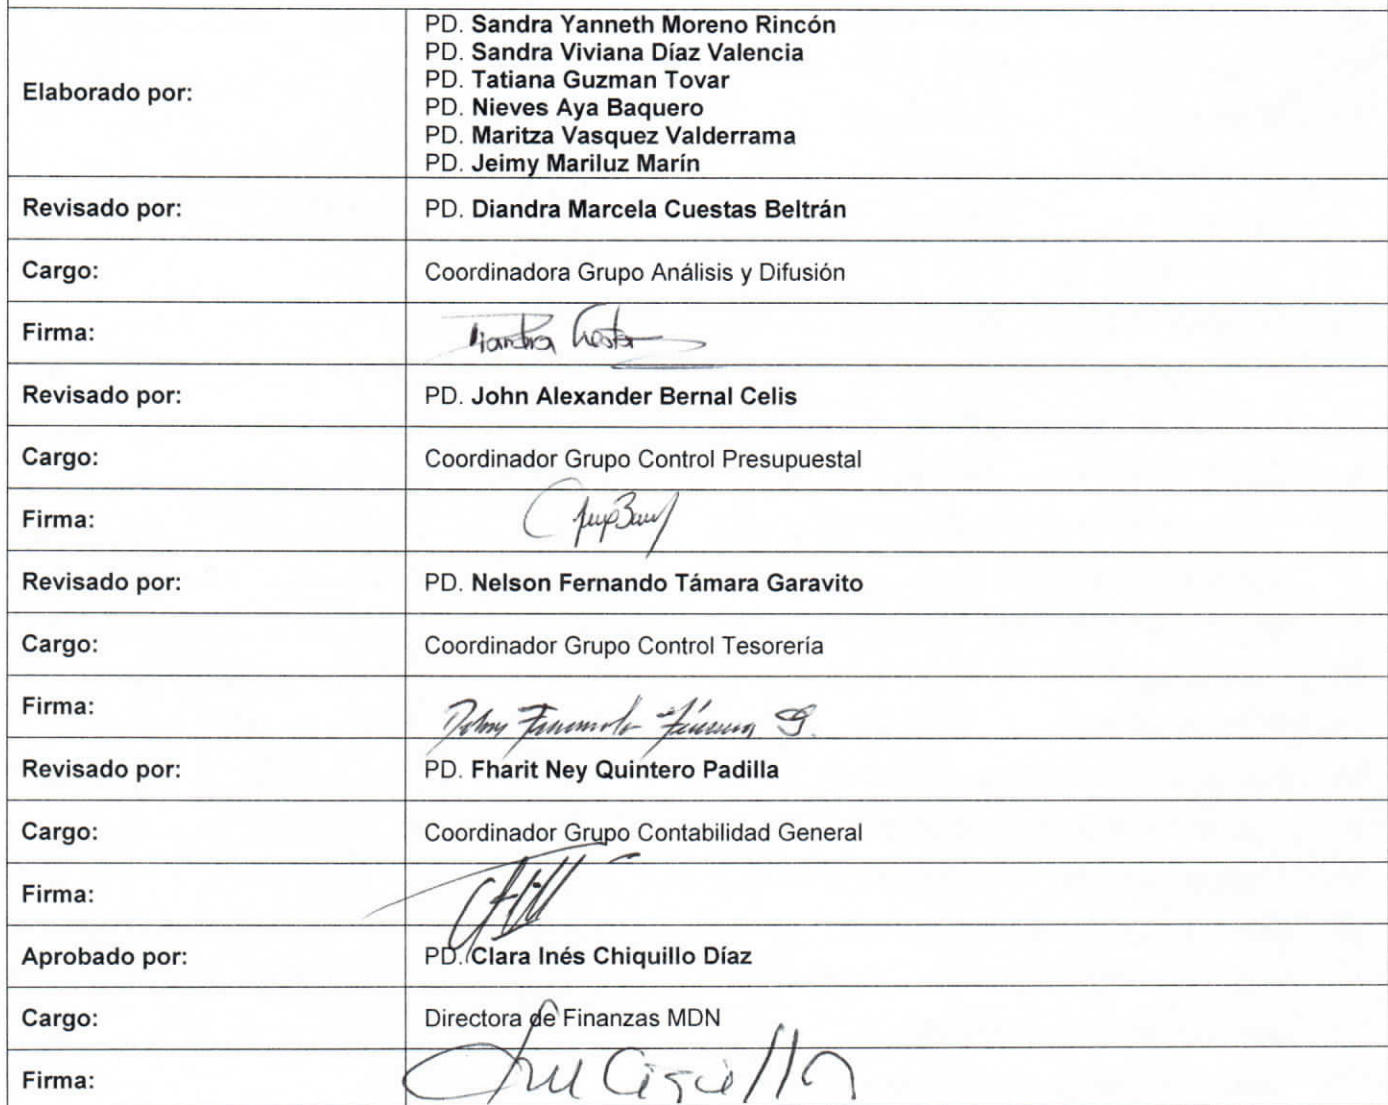 Elaborado por:
PD. Sandra Yanneth Moreno Rincón
PD. Sandra Viviana Díaz Valencia
PD. Tatiana Guzman Tovar
PD. Nieves Aya Baquero
PD. Maritza Vasquez Valderrama
PD. Jeimy Mariluz Marín
Revisado por: PD. Diandra Marcela Cuestas Beltrán
Cargo: Coordinadora Grupo Análisis y Difusión
Firma:
Revisado por: PD. John Alexander Bernal Celis
Cargo: Coordinador Grupo Control Presupuestal
Firma:
Revisado por: PD. Nelson Fernando Támara Garavito
Cargo: Coordinador Grupo Control Tesorería
Firma:
Revisado por: PD. Fharit Ney Quintero Padilla
Cargo: Coordinador Grupo Contabilidad General
Firma:
Aprobado por: PD. Clara Inés Chiquillo Díaz
Cargo: Directora de Finanzas MDN
Firma: